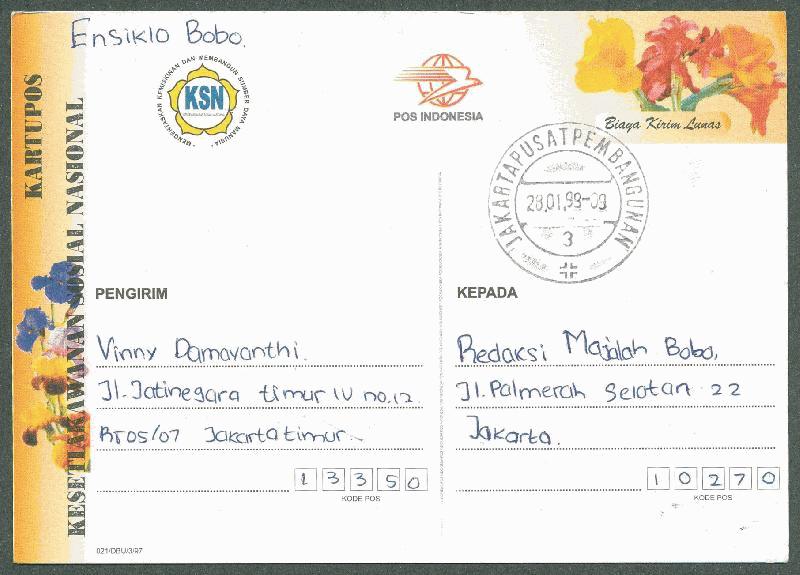 Ensiklo Bobo.
KARTUPOS
KESETIAKAWANAN SOSIAL NASIONAL
MENGENTASKAN KEMISKINAN DAN MEMBANGUN SUMBER DAYA MANUSIA
KSN
POS INDONESIA
Biaya Kirim Lunas
JAKARTAPUSATPEMBANGUNAN
28.01.99-09
3
PENGIRIM
Vinny Damayanthi.
Jl. Jatinegara timur IV no.12.
Rt05/07 Jakarta timur
13350
KODE POS
KEPADA
Redaksi Majalah Bobo,
Jl. Palmerah Selatan 22
Jakarta.
10270
KODE POS
021/DBU/3/97